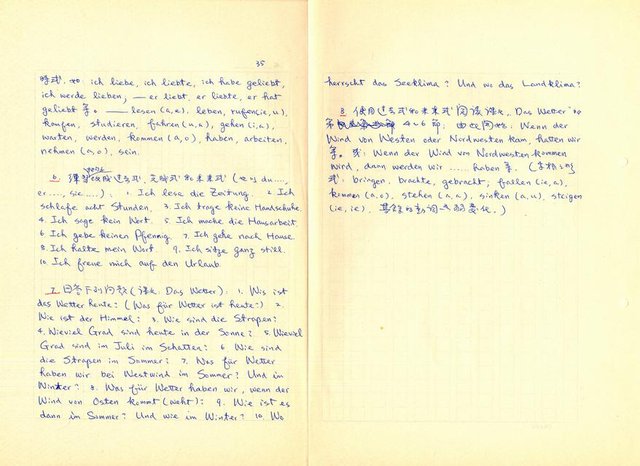 35
時式. 如 ich liebe, ich liebte, ich habe geliebt,
ich werde lieben, — er liebt, er liebte, er hat
geliebt 等。 — lesen (a, e), leben, rufen (ie, u),
kaufen, studieren, fahren (u, a), gehen (i, a),
warten, werden, kommen (a, o), haben, arbeiten,
nehmen (a, o), sein.
6. 過去式 完成式 和未來式 (er
er...., sie....). 1. Ich lese die Zeitung. 2. Ich
schlafe acht Stunden. 3. Ich trage keine Handschuhe.
4. Ich sage kein Wort. 5. Ich mache die Hausarbeit.
6. Ich gebe keinen Pfennig. 7. Ich gehe nach Hause.
8. Ich halte mein Wort. 9. Ich sitze ganz still.
10. Ich freue mich auf den Urlaub.
7. 回答下列问题 (課文. Das Wetter): 1. Wie ist
das Wetter heute? (Was für Wetter ist heute?) 2.
Wie ist der Himmel? 3. Wie sind die Strapen?
4. Wieviel Grad sind heute in der Sonne? 5. Wieviel
Grad sind im Juli im Schatten? 6. Wie sind
die Strapen im Sommer? 7. Was für Wetter
haben wir bei Westwind im Sommer? Und im
Winter? 8. Was für Wetter haben wir, wenn der
Wind von Osten kommt (weht)? 9. Wie ist es
dann im Sommer? Und wie im Winter? 10. Wo
herrscht das Seeklima? Und wo das Landklima?
8. 使用过去式和未來式 阅读課文, Das Wetter" 的
第 4-6 節: 由此開始: Wenn der
Wind von Westen oder Nordwesten kam, hatten wir
等. 或: Wenn der Wind von Nordwesten kommen
wird, dann werden wir ..... haben 等. (
式: bringen, brachte, gebracht, fallen (ie, a),
kommen (a, o), stehen (a, a), sinken (a, u), steigen
(ie, ie). 其餘的動詞 弱变化.)